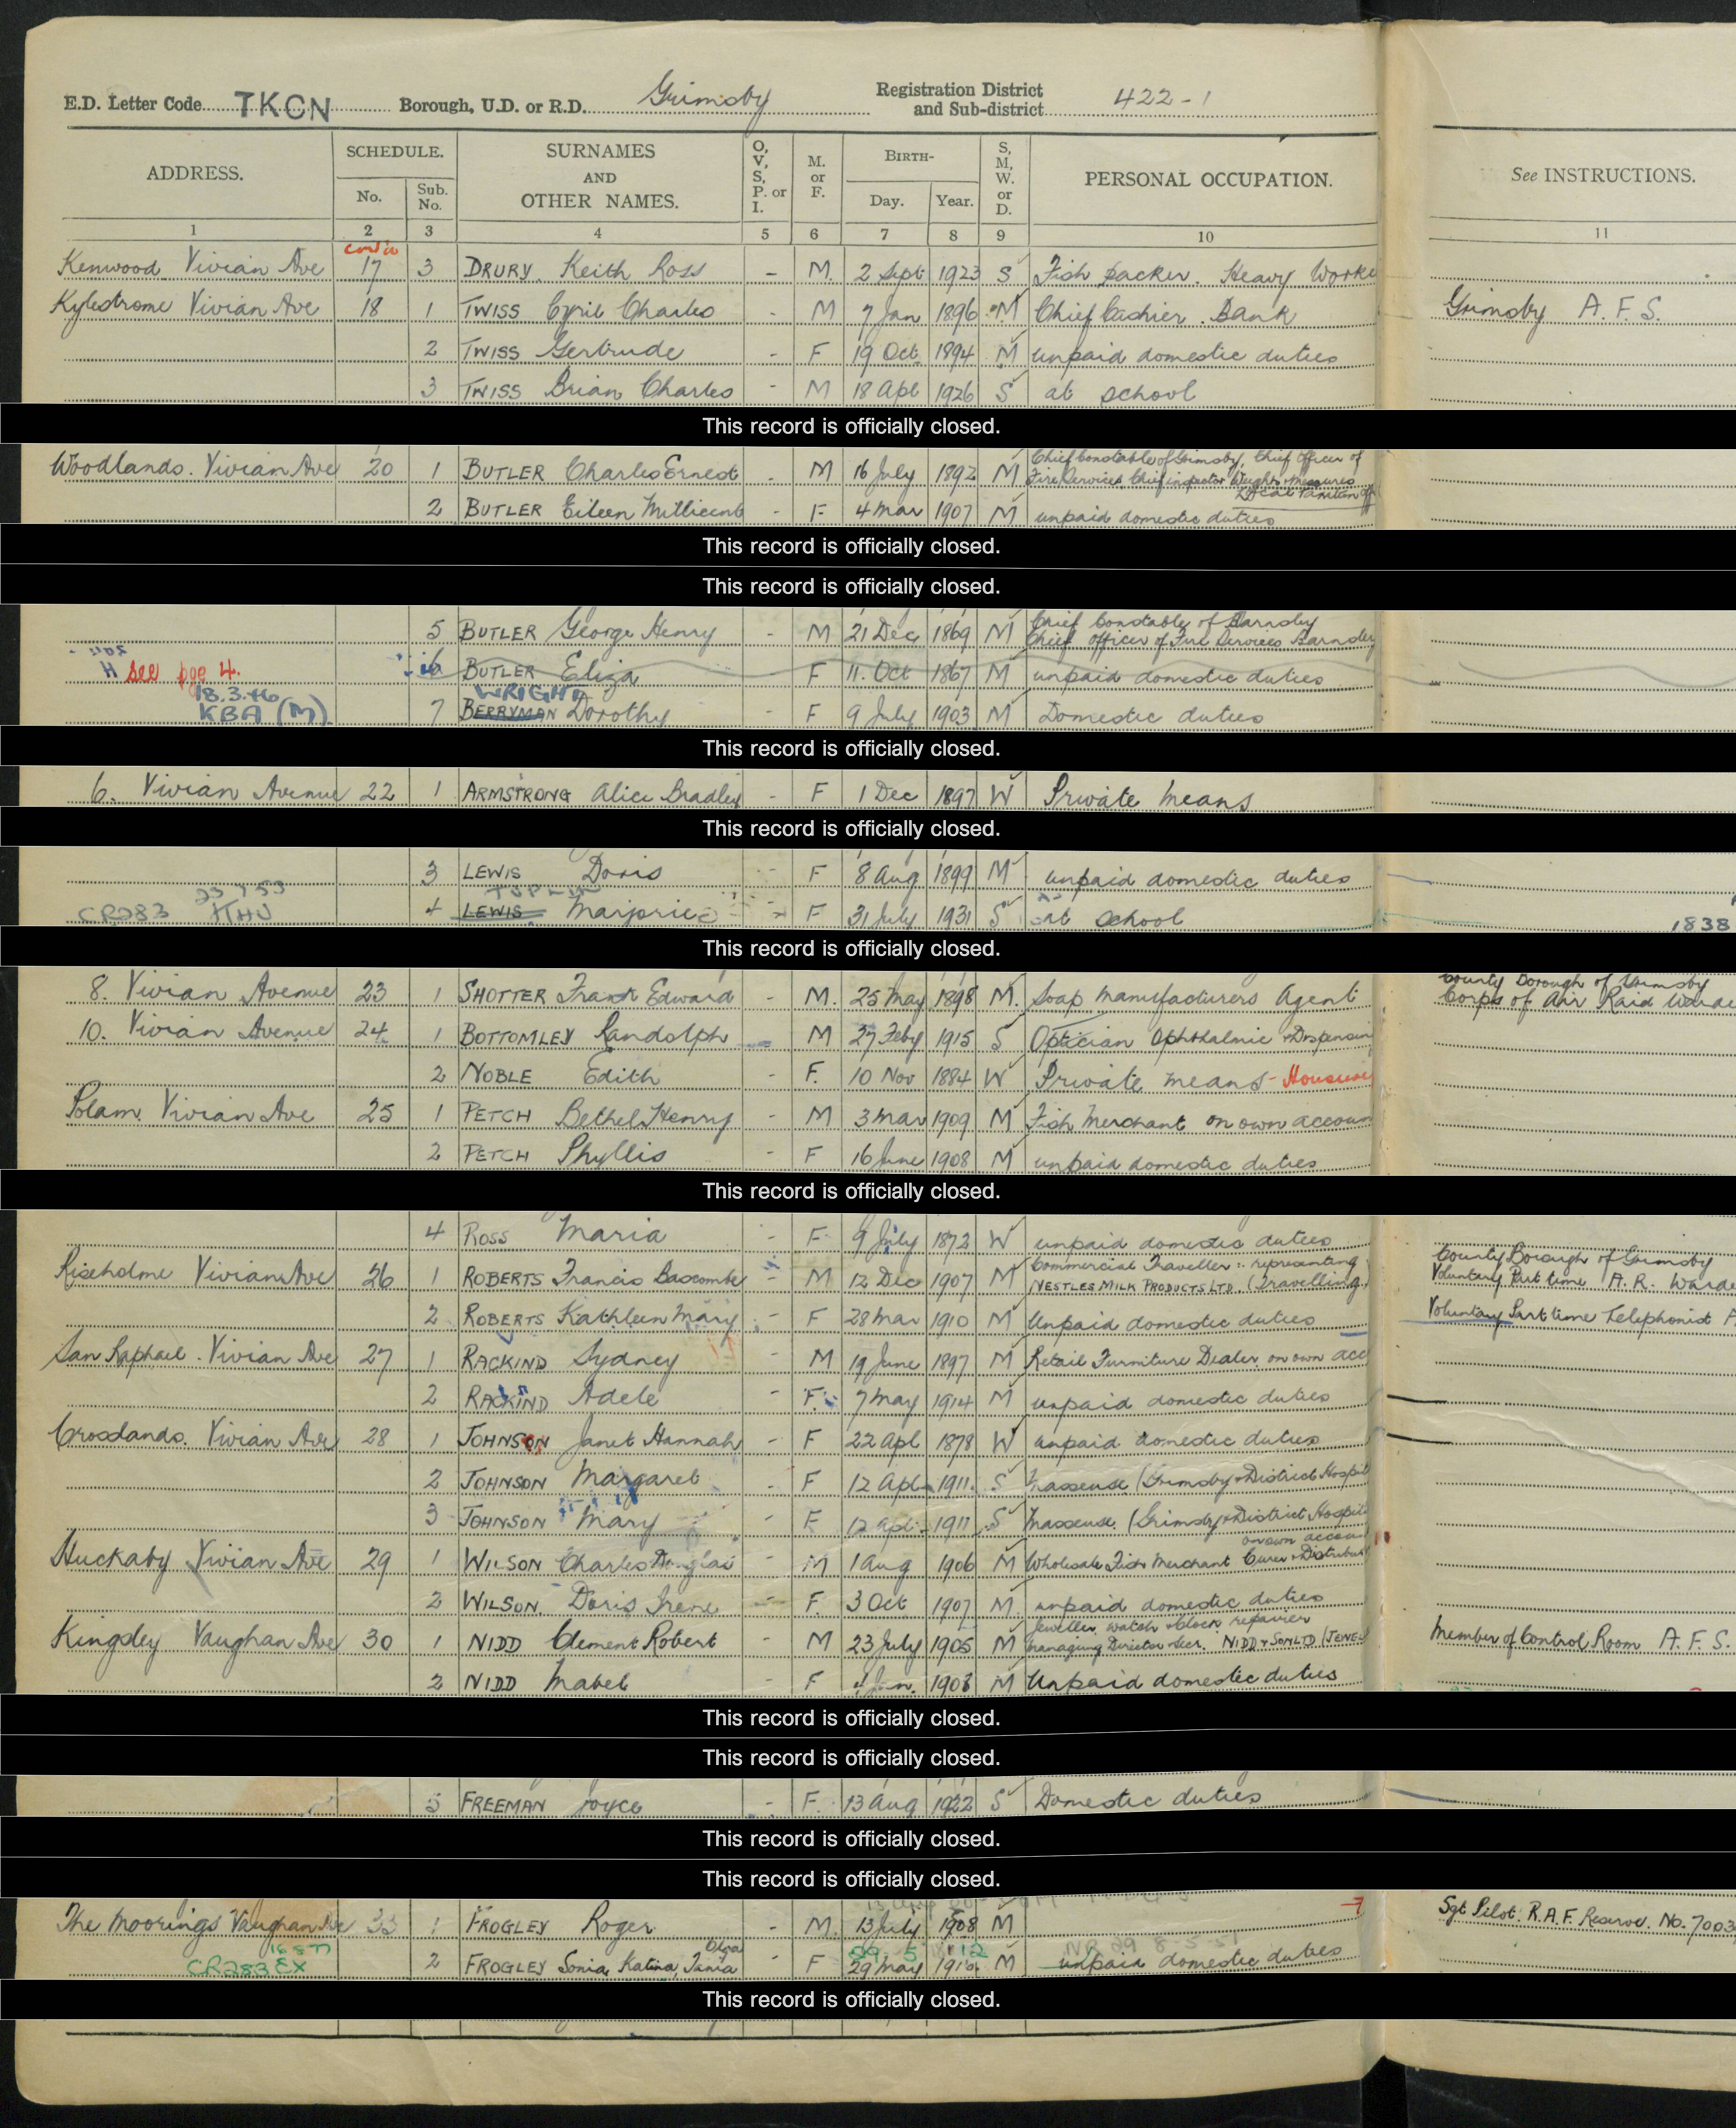 E.D. Letter Code TKCN Borough, U.D. or R.D. Grimsby Registration District and Sub-district 422-1
ADDRESS. SCHEDULE. No. Sub. No. SURNAMES AND OTHER NAMES. O, V, S, P. or I. M. or F. BIRTH- Day. Year. S, M, W. or D. PERSONAL OCCUPATION. See INSTRUCTIONS.
1 2 3 4 5 6 7 8 9 10 11
Kenwood Vivian Ave 17 3 DRURY. Keith Ross - M. 2 Sept 1923 S Fish packer. Heavy Worke
Kylestrome Vivian Ave 18 1 TWISS Cyril Charles - M 7 Jan 1896 M Chief Cashier. Bank Grimsby A.F.S.
2 TWISS Gertrude - F 19 Oct 1894 M unpaid domestic duties
3 TWISS Brian Charles - M 18 Apl 1926 S at school
This record is officially closed.
Woodlands. Vivian Ave 20 1 BUTLER Charles Ernest - M 16 July 1892 M Chief Constable of Grimsby, Chief Officer of
Fire Services Chief inspector Weights + measures
2 BUTLER Eileen Millicent - F 4 Mar 1907 M unpaid domestic duties
This record is officially closed.
This record is officially closed.
5 BUTLER George Henry - M 21 Dec 1869 M Chief Constable of Barnsley
Chief officer of Fire Services Barnsley
H see pge 4. 6 BUTLER Eliza F 11. Oct 1867 M unpaid domestic duties
18.3.46 WRIGHT
KBA (M) 7 BERRYMAN Dorothy - F 9 July 1903 M Domestic duties
This record is officially closed.
6. Vivian Avenue 22 1 ARMSTRONG Alice Bradley - F 1 Dec 1897 W Private means
This record is officially closed.
3 LEWIS Doris - F 8 Aug 1899 M unpaid domestic duties
CR283 4 LEWIS Marjorie - F 31 July 1931 S at school 1838
This record is officially closed.
8. Vivian Avenue 23 1 SHOTTER Frank Edward - M. 25 May 1898 M. Soap manufacturers Agent County Borough of Grimsby
Corps of Air Raid Warde
10. Vivian Avenue 24 1 BOTTOMLEY Randolph M 27 Feby 1915 S Optician Ophthalmic + Dispensing
2 NOBLE Edith - F. 10 Nov 1884 W Private means - Housewi
Polam Vivian Ave 25 1 PETCH Bethel Henry - M 3 Mar 1909 M Fish Merchant on own accoun
2 PETCH Phyllis - F 16 June 1908 M unpaid domestic duties
This record is officially closed.
4 ROSS Maria - F 9 July 1872 W unpaid domestic duties
Riseholme Vivian Ave 26 1 ROBERTS Francis Bascombe - M 12 Dec 1907 M Commercial Traveller: representing County Borough of Grimsby
NESTLES MILK PRODUCTS LTD. (Travelling.) Voluntary Part time A.R. Warde
2 ROBERTS Kathleen Mary - F 28 Mar 1910 M Unpaid domestic duties Voluntary Part time Telephonist
San Raphael. Vivian Ave 27 1 RACKIND Sydney M 19 June 1897 M Retail Furniture Dealer on own acc
2 RACKIND Adele - F. 7 May 1914 M unpaid domestic duties
Crosslands. Vivian Ave 28 1 JOHNSON Janet Hannah - F 22 Apl 1878 W unpaid domestic duties
2 JOHNSON Margaret - F 12 Apl 1911 S Masseuse (Grimsby + District Hospit
3 JOHNSON Mary F 12 Apl 1911 S Masseuse. (Grimsby + District Hospit
on own accoun
Huckaby Vivian Ave 29 1 WILSON Charles Douglas - M 1 Aug 1906 M Wholesale Fish Merchant Curer + Distribut
2 WILSON. Doris Irene - F. 3 Oct 1907 M. unpaid domestic duties
Kingsley Vaughan Ave 30 1 NIDD Clement Robert - M 23 July 1905 M Jeweller watch + clock repairer
Managing Director + Sec. NIDD & SON LTD Member of Control Room A.F.S.
2 NIDD Mabel F Jan. 1908 M Unpaid domestic duties
This record is officially closed.
This record is officially closed.
3 FREEMAN Joyce - F. 13 Aug 1922 S Domestic duties
This record is officially closed.
This record is officially closed.
The Moorings Vaughan Ave 33 1 FROGLEY Roger - M. 13 July 1908 M Sgt Pilot. R.A.F. Reserve. No. 7003
CR283 EX 2 FROGLEY Sonia, Katina, Tania Olga - F 29 May M unpaid domestic duties
This record is officially closed.